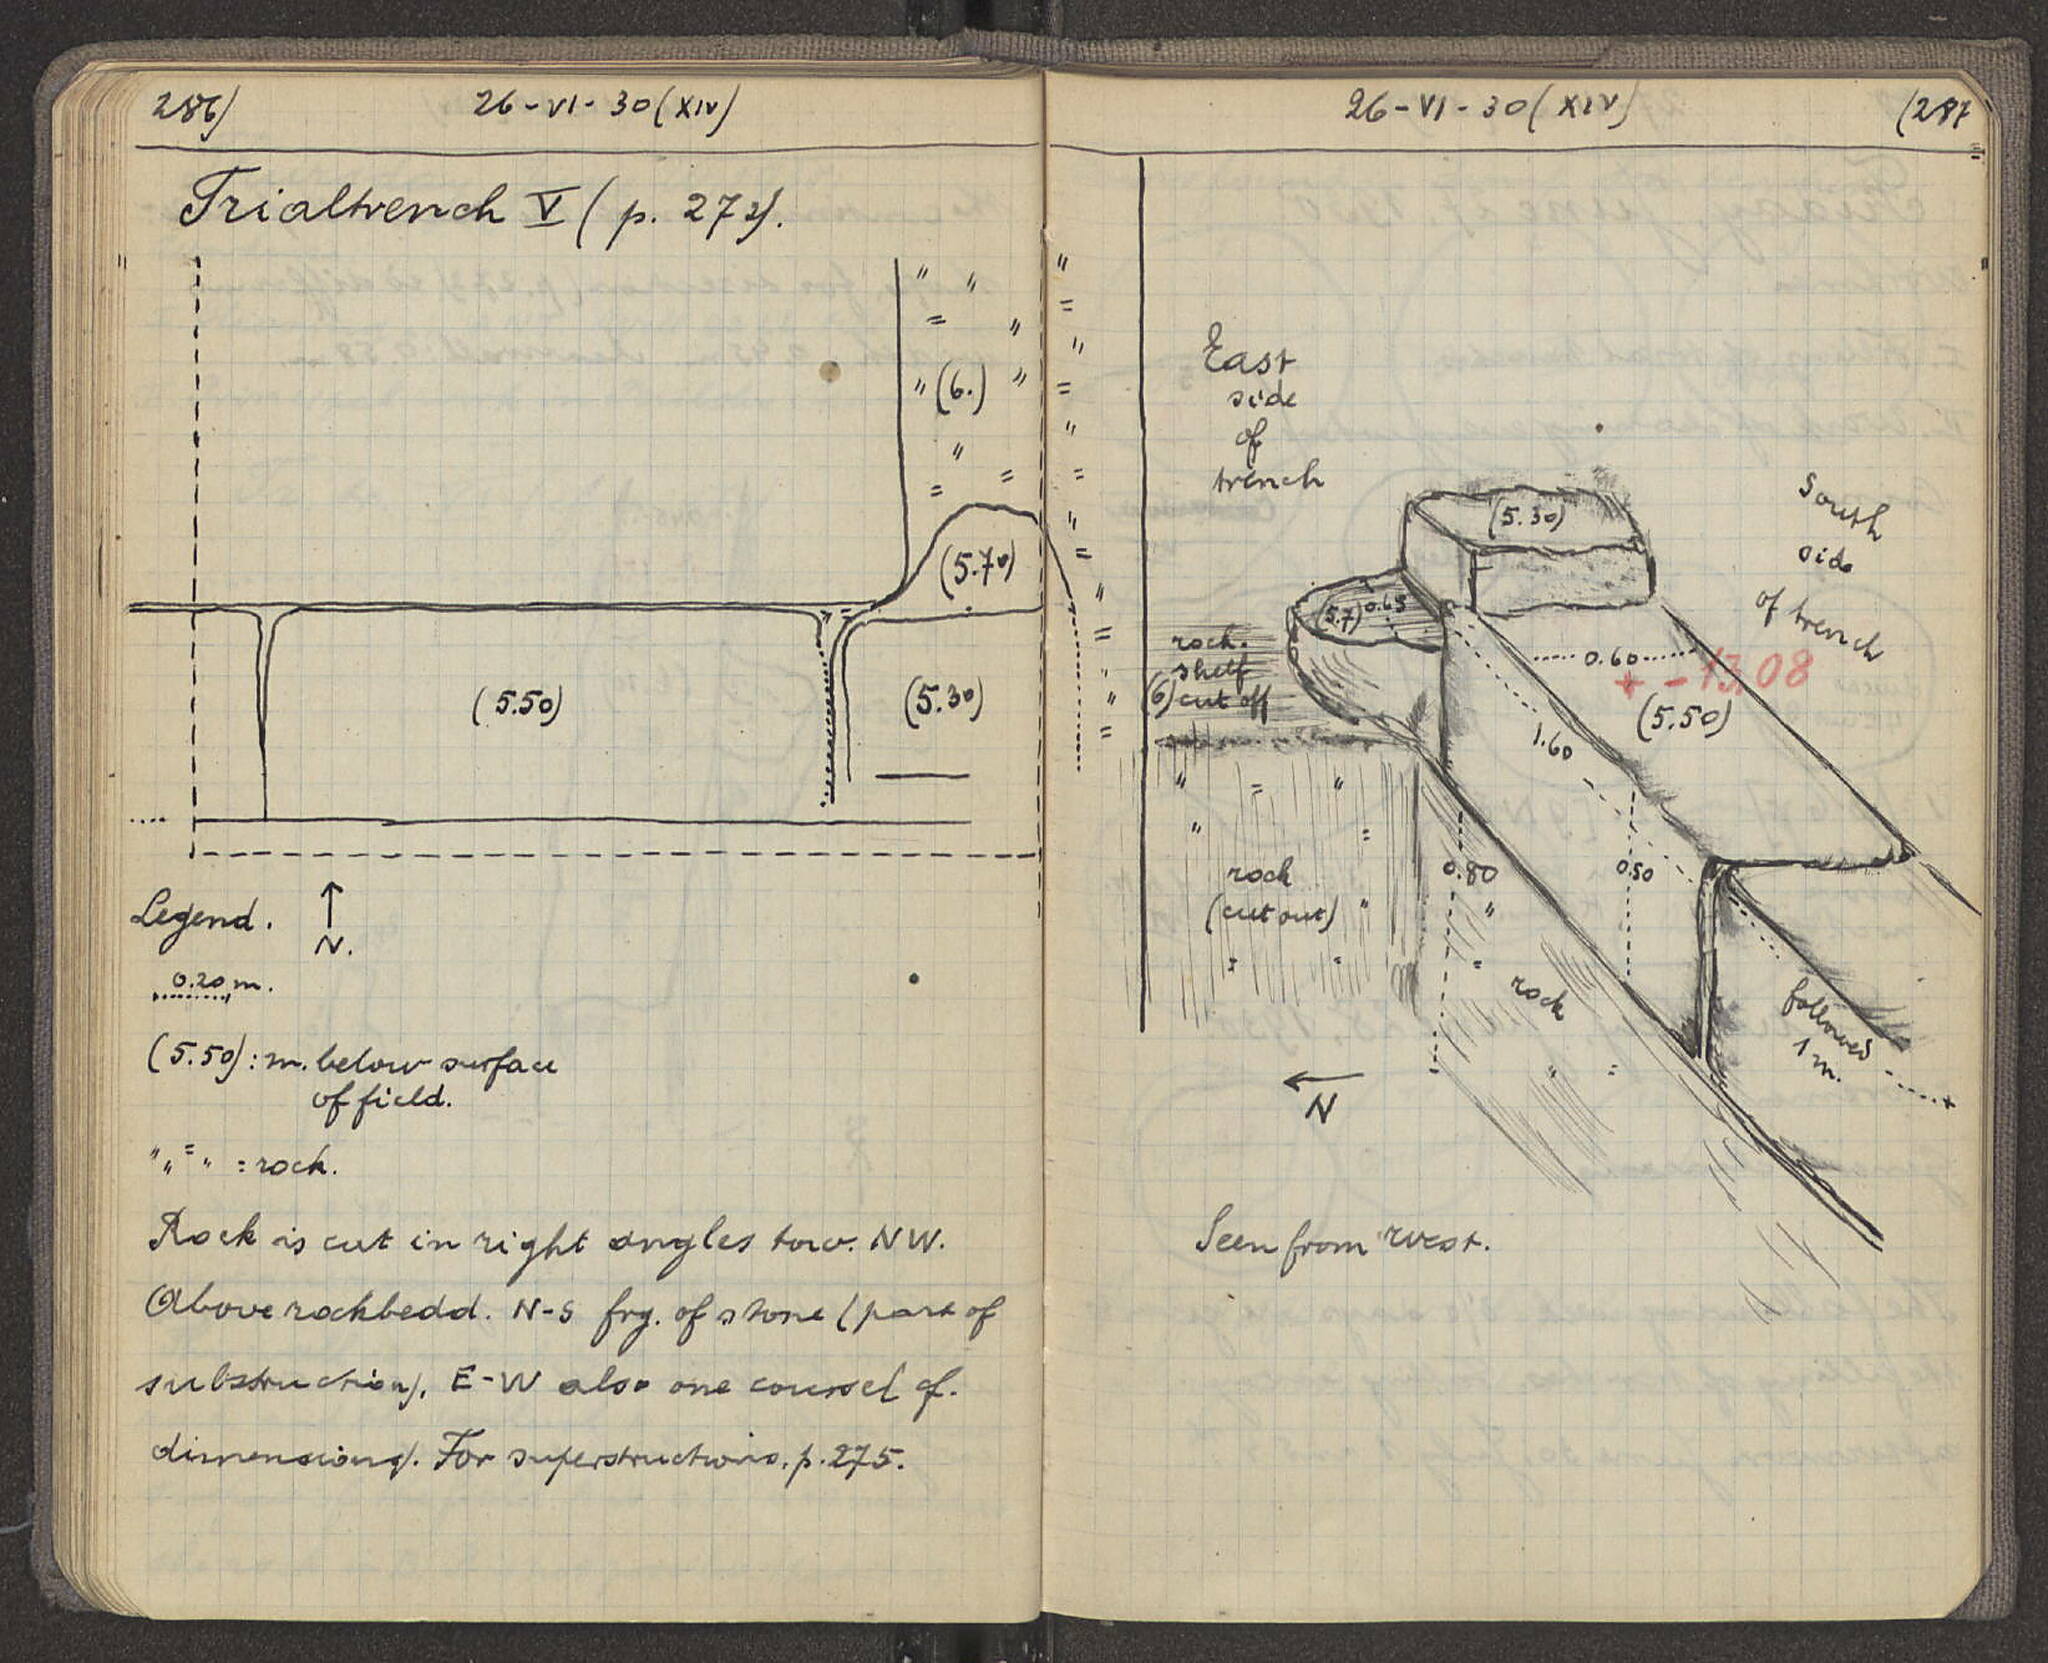 286)
26-VI-30(XIV)
Trialtrench V (p. 272).
(6.)
(5.70)
(5.50)
(5.30)
Legend.
N.
0.20 m.
(5.50): m. below surface
of field.
= rock.
Rock is cut in right angles tow. NW.
Above rockbedd. N-S frg. of stone (part of
substruction). E-W also one course(cf.
dimensions). For superstructions. p. 275.
26-VI-30(XIV)
(287
East
side
of
trench
South
side
of trench
(5.30)
(5.7)
0.65
rock.
shelf
(6) cut off
0.60
+ -13,08
(5.50)
1.60
rock
(cut out)
0.80
0.50
rock
followed
1 m.
N
Seen from west.